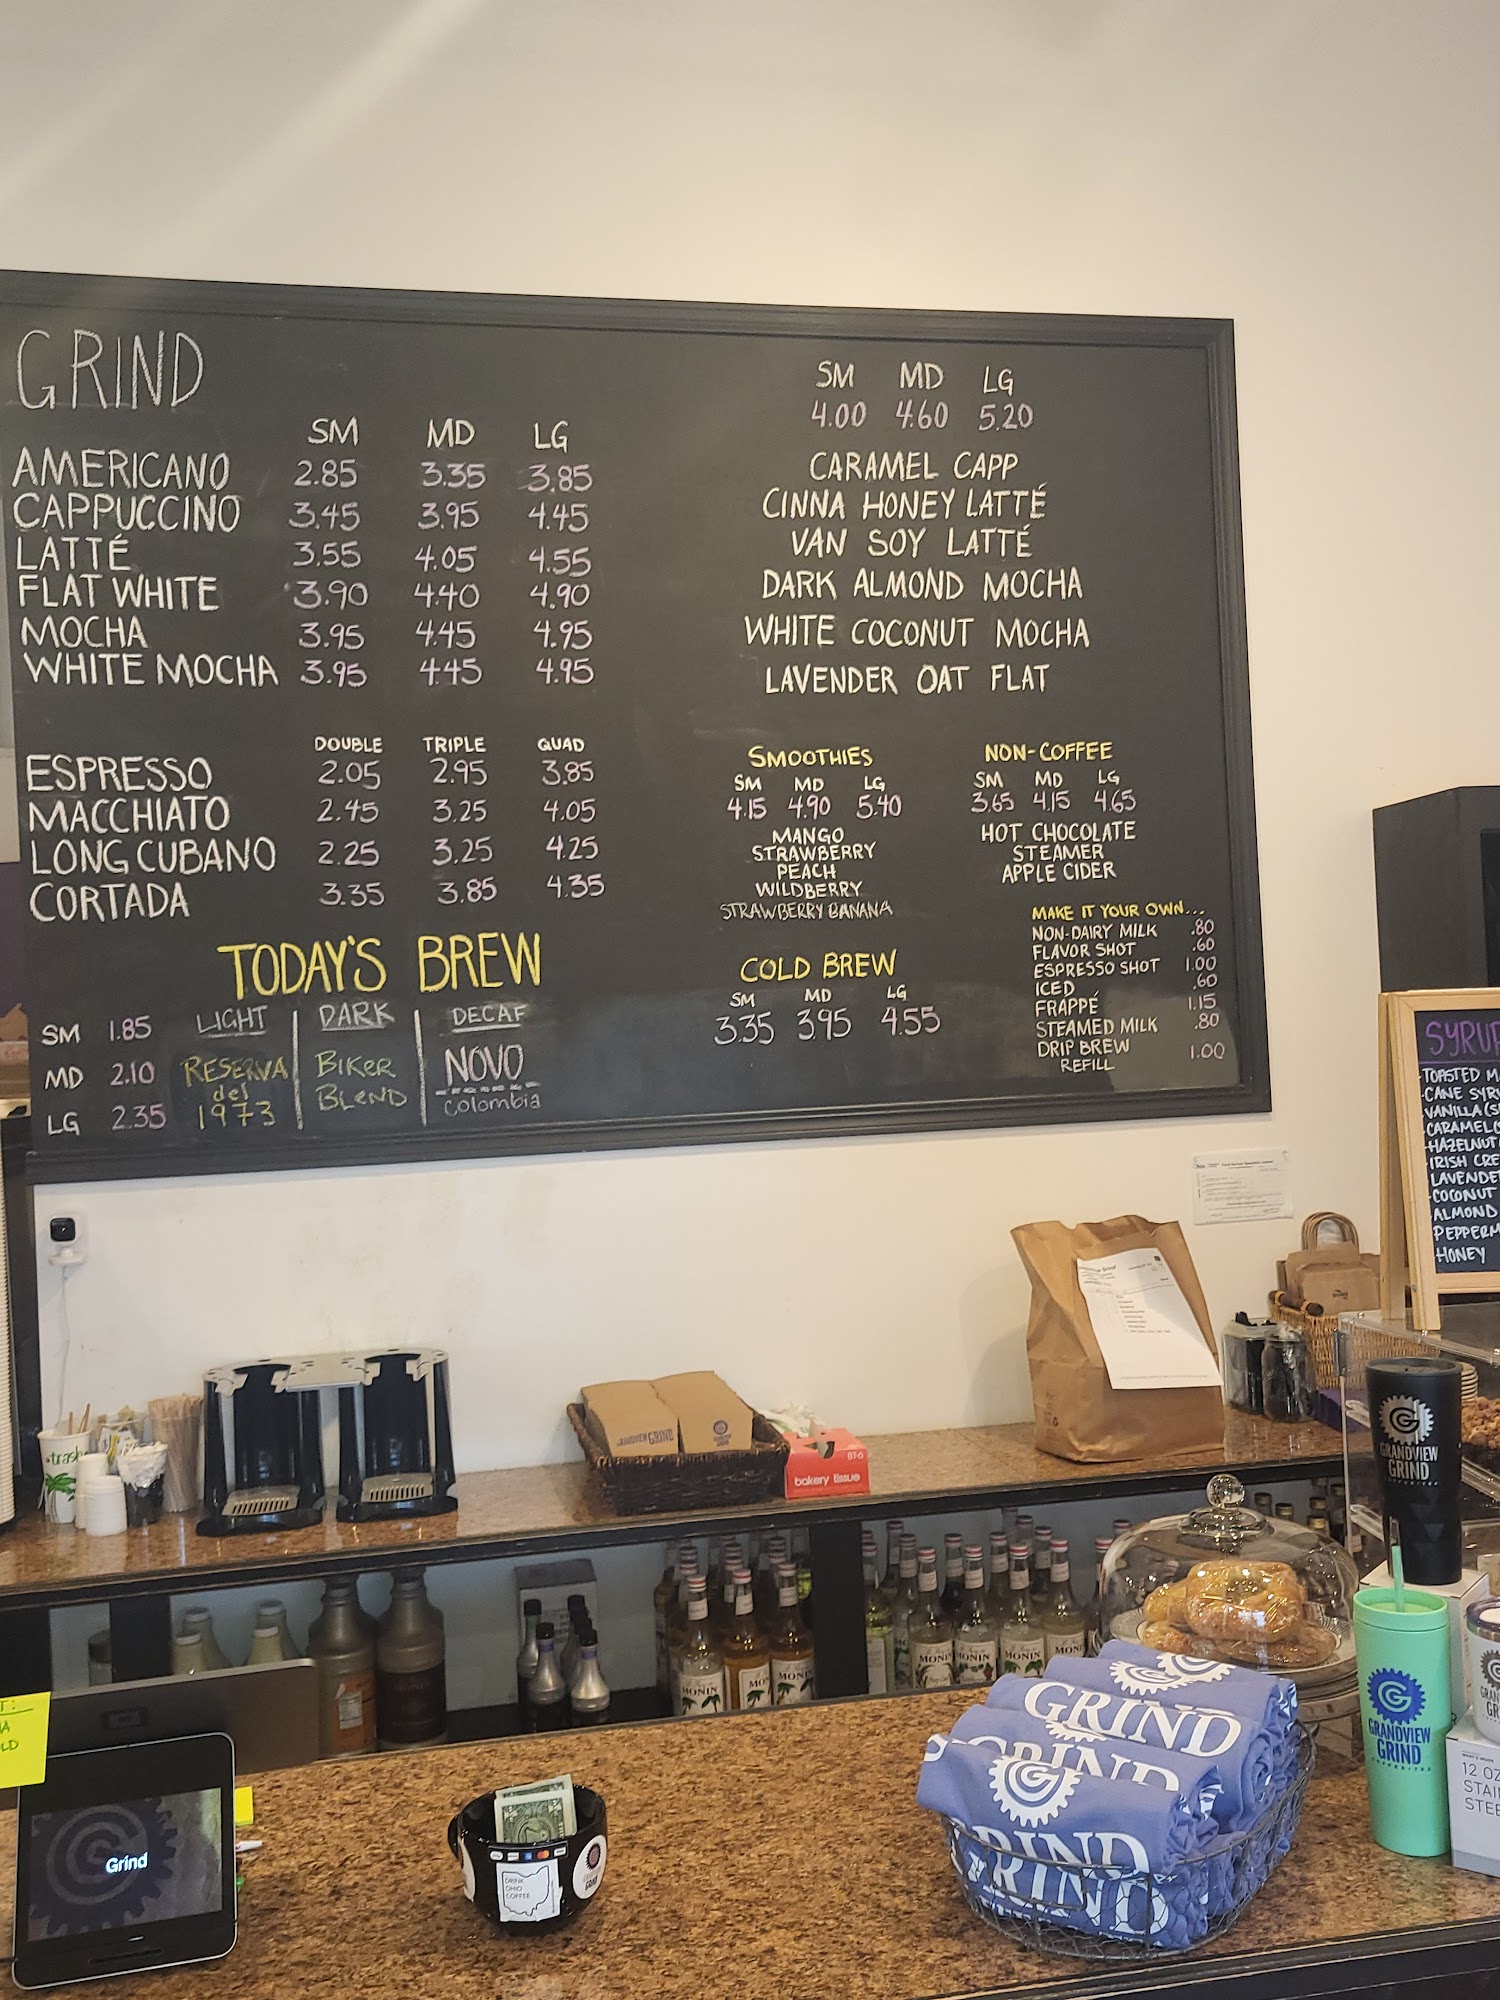 GRIND
SM MD LG
AMERICANO 2.85 3.35 3.85
CAPPUCCINO 3.45 3.95 4.45
LATTÉ 3.55 4.05 4.55
FLAT WHITE 3.90 4.40 4.90
MOCHA 3.95 4.45 4.95
WHITE MOCHA 3.95 4.45 4.95
DOUBLE TRIPLE QUAD
ESPRESSO 2.05 2.95 3.85
MACCHIATO 2.45 3.25 4.05
LONG CUBANO 2.25 3.25 4.25
CORTADA 3.35 3.85 4.35
TODAY'S BREW
SM 1.85
MD 2.10
LG 2.35
LIGHT
RESERVA
del
1973
DARK
BIKER
BLEND
DECAF
NOVO
Colombia
SM MD LG
4.00 4.60 5.20
CARAMEL CAPP
CINNA HONEY LATTÉ
VAN SOY LATTÉ
DARK ALMOND MOCHA
WHITE COCONUT MOCHA
LAVENDER OAT FLAT
SMOOTHIES
SM MD LG
4.15 4.90 5.40
MANGO
STRAWBERRY
PEACH
WILDBERRY
STRAWBERRY BANANA
NON-COFFEE
SM MD LG
3.65 4.15 4.65
HOT CHOCOLATE
STEAMER
APPLE CIDER
COLD BREW
SM MD LG
3.35 3.95 4.55
MAKE IT YOUR OWN...
NON-DAIRY MILK .80
FLAVOR SHOT .60
ESPRESSO SHOT 1.00
ICED .60
FRAPPÉ 1.15
STEAMED MILK .80
DRIP BREW 1.00
REFILL
SYRUP
TOASTED M
CANE SYR
VANILLA (S
CARAMEL (
HAZELNUT
IRISH CRE
LAVENDE
COCONUT
ALMOND
PEPPERM
HONEY
trash
GRANDVIEW GRIND
BT-6
bakery tissue
GRANDVIEW
GRIND
MONIN
MONIN
MONIN
MONIN
MONIN
MONIN
T:
LD
Grind
DRINK
OHIO
COFFEE
GRIND
GRIND
GRIND
GRIND
GRANDVIEW
GRIND
12 OZ
STAI
STEE